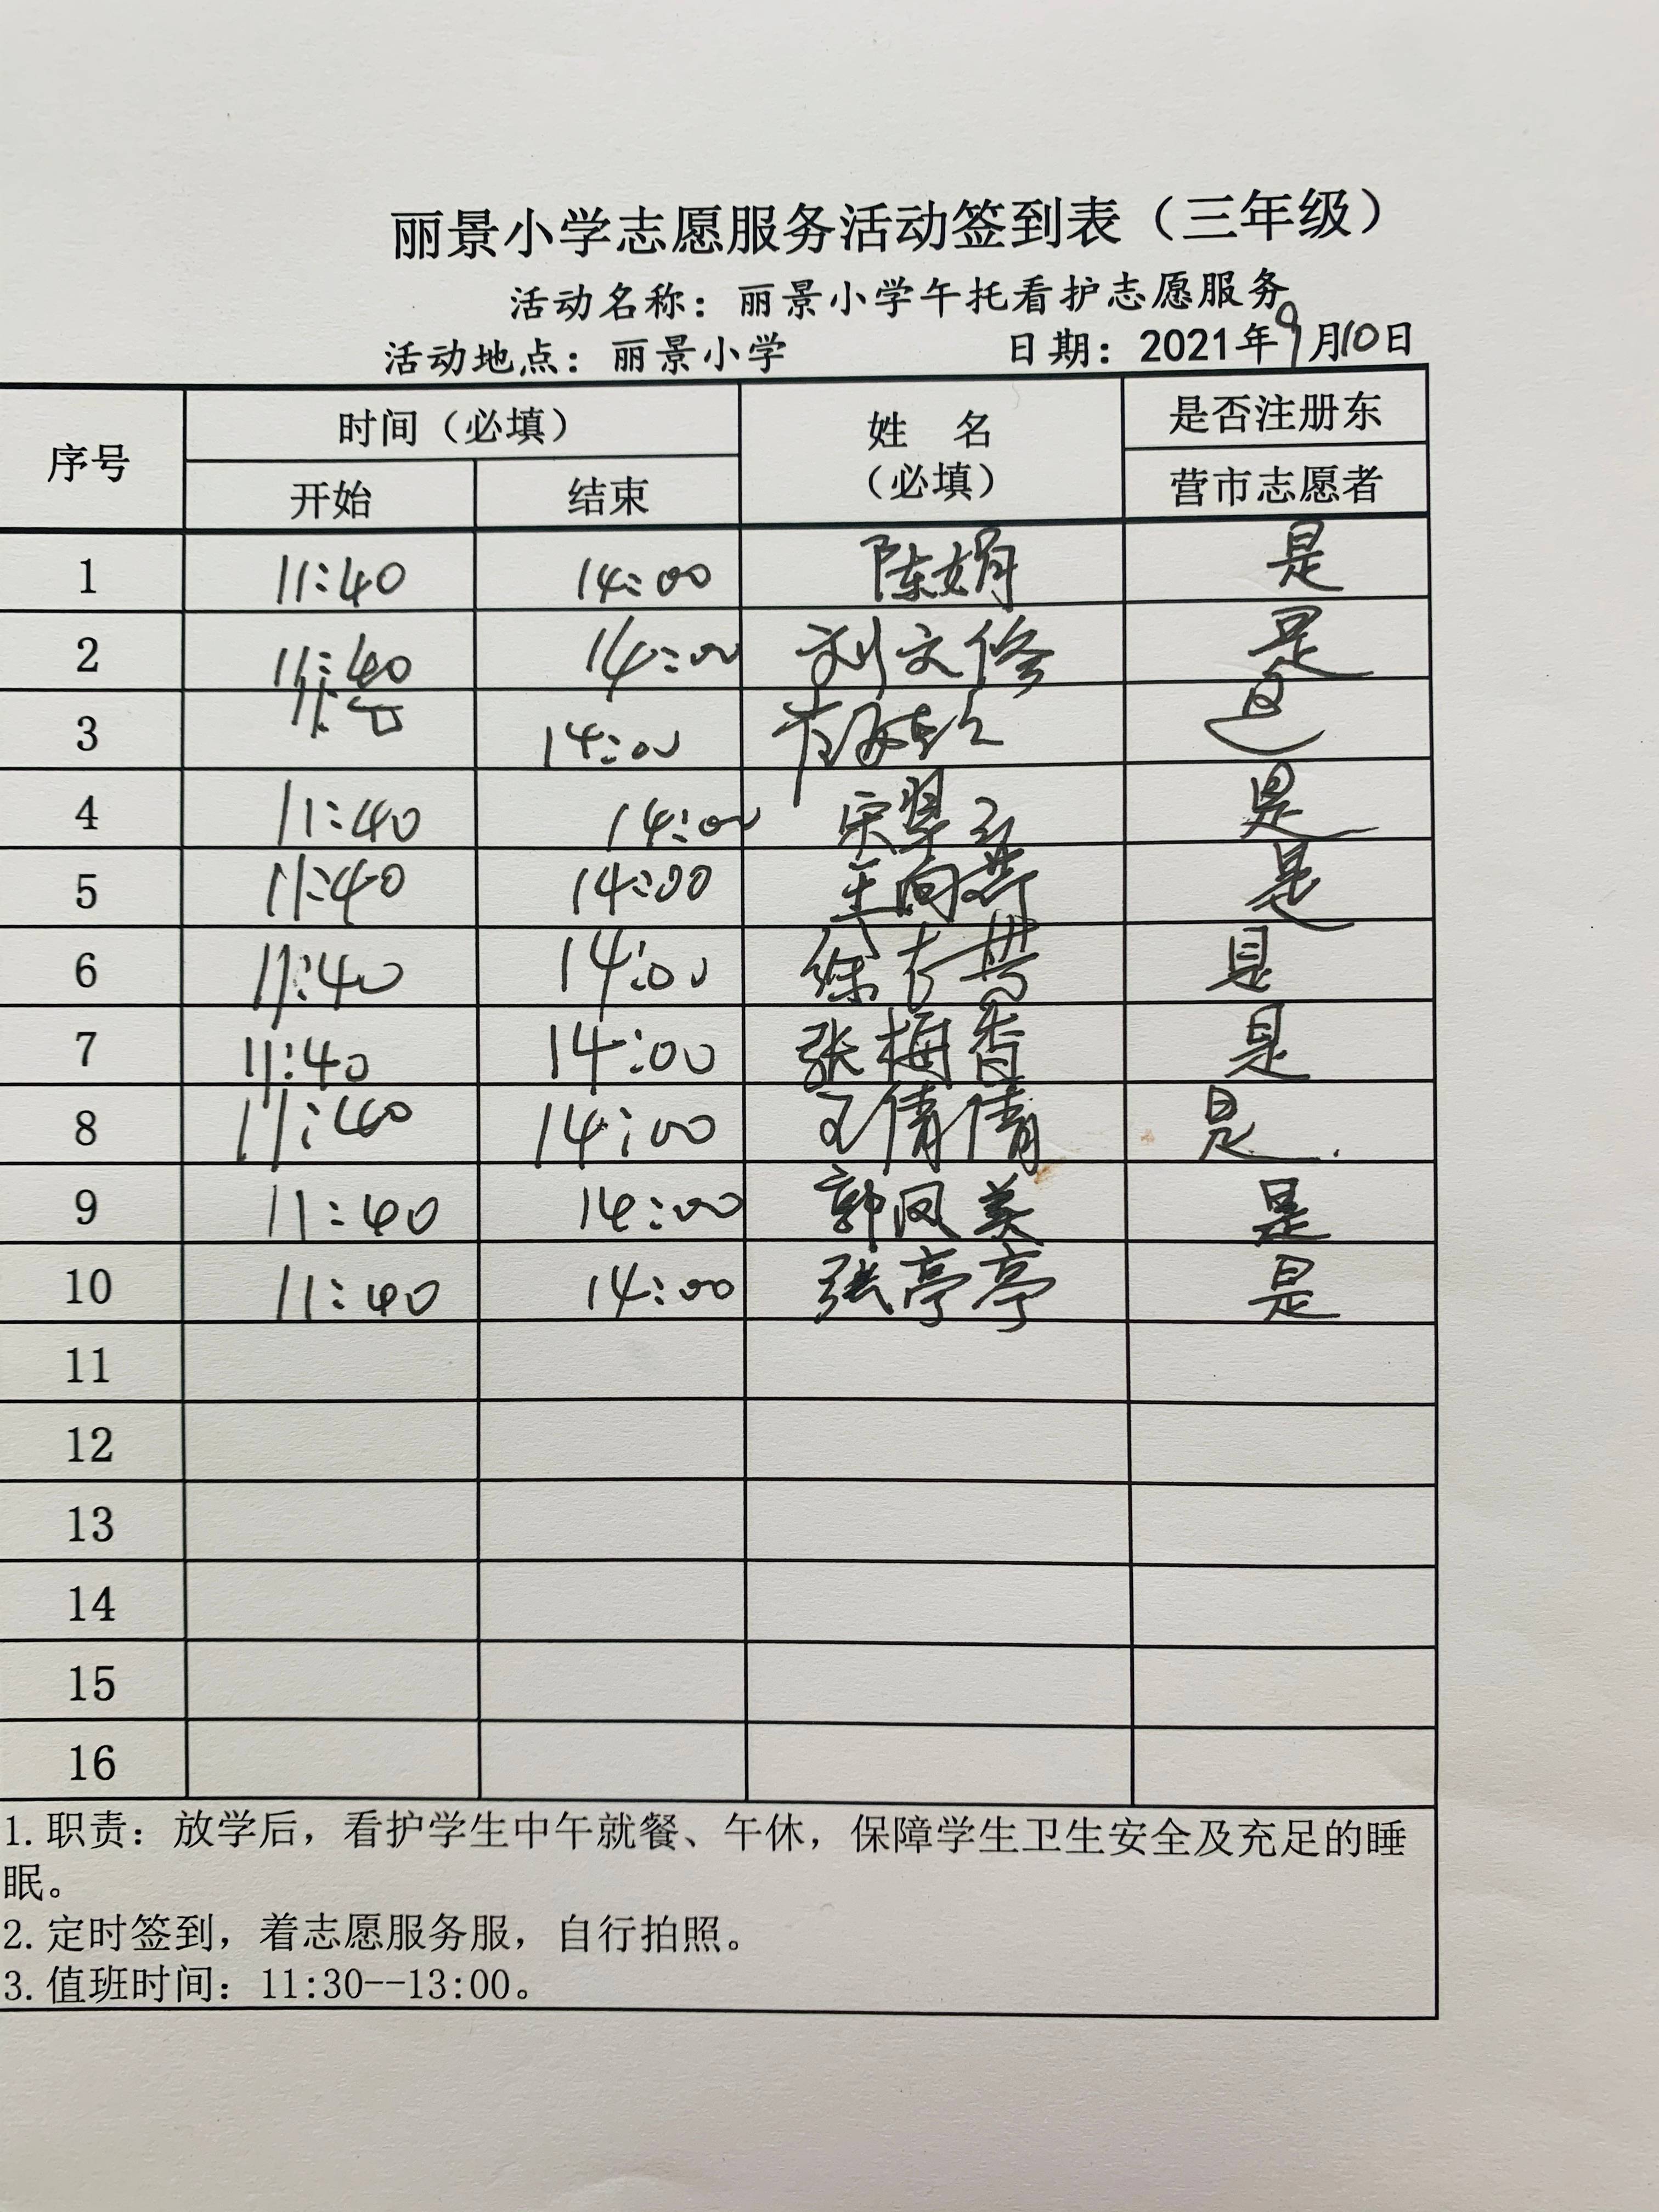 丽景小学志愿服务活动签到表（三年级）
活动名称：丽景小学午托看护志愿服务
活动地点：丽景小学 日期：2021年9月10日
序号 时间（必填） 姓 名 （必填） 是否注册东
开始 结束 营市志愿者
1 11:40 14:00 陈娟 是
2 11:40 14:00 刘文修 是
3 14:00 是
4 11:40 14:00 宋翠 是
5 11:40 14:00 王向 是
6 11:40 14:00 徐 是
7 11:40 14:00 张梅香 是
8 11:40 14:00 王倩倩 是
9 11:40 14:00 郭凤美 是
10 11:40 14:00 张亭亭 是
11
12
13
14
15
16
1.职责：放学后，看护学生中午就餐、午休，保障学生卫生安全及充足的睡
眠。
2.定时签到，着志愿服务服，自行拍照。
3.值班时间：11:30--13:00。